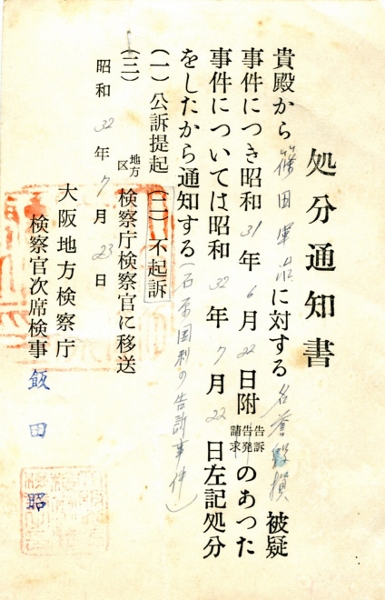 処分通知書
貴殿から篠田軍治に対する名誉毀損被疑
事件につき昭和31年6月22日附告訴告発請求のあつた
事件については昭和32年7月22日左記処分
をしたから通知する(石原国利の告訴事件)
(一)公訴提起(二)不起訴
(三)地方区検察庁検察官に移送
昭和32年7月23日
大阪地方検察庁
検察官次席検事飯田昭